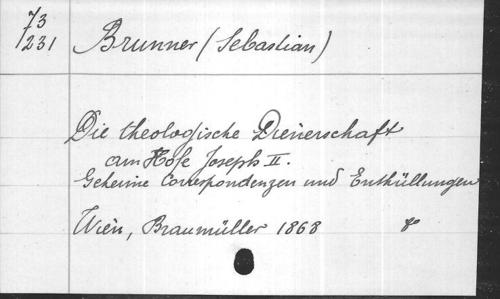 73
1231
Brunner (Sebastian)
Die theologische Dienerschaft
am Hofe Joseph II.
Geheime Correspondenzen und Enthüllungen
Wien, Braumüller 1868 8°